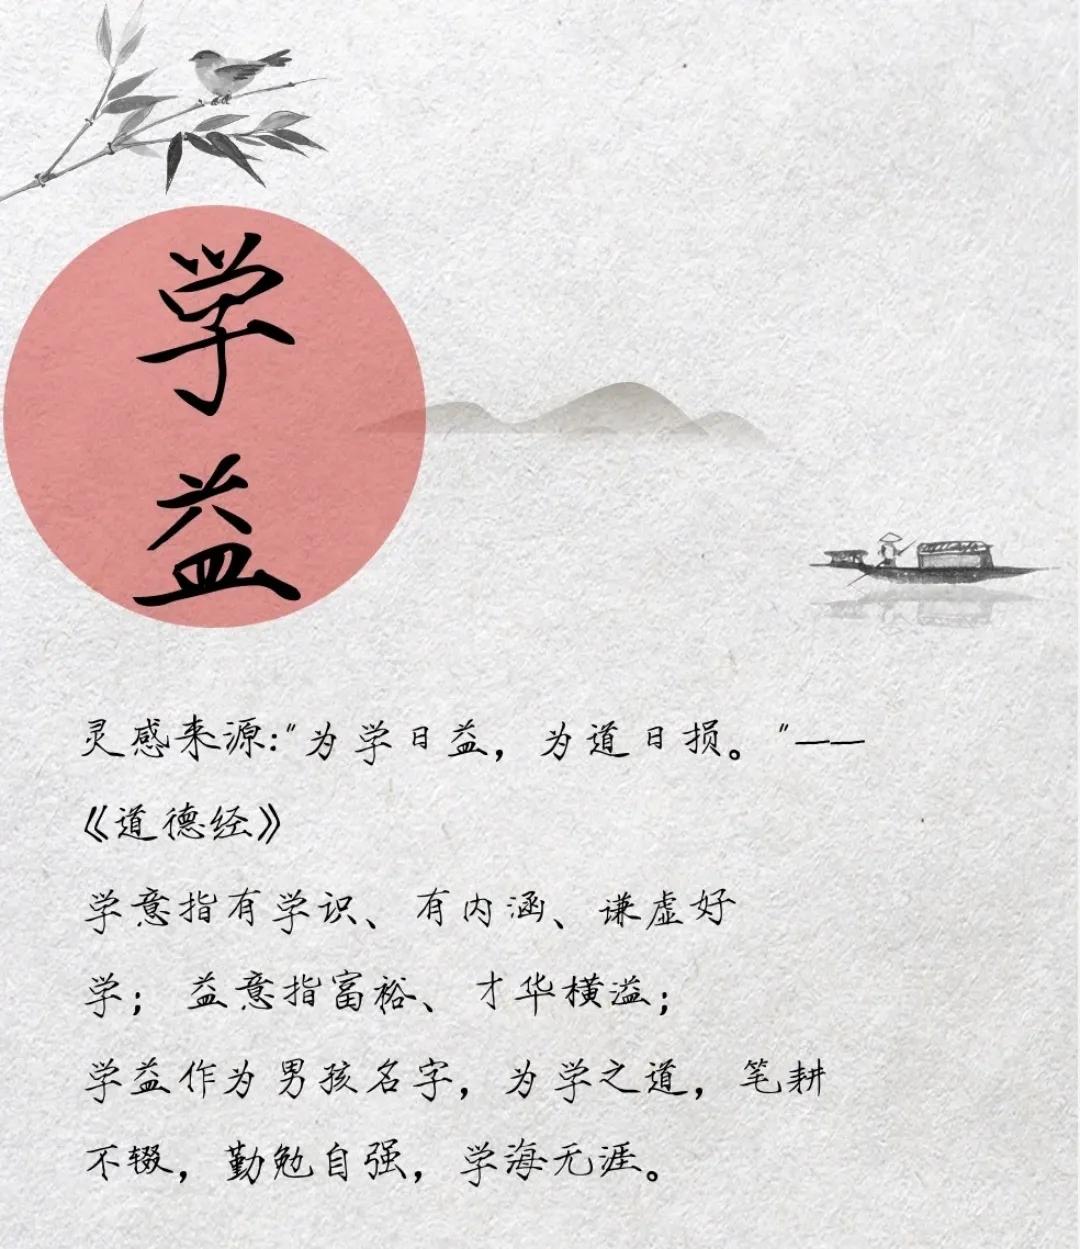 学益
灵感来源:"为学日益，为道日损。"——
《道德经》
学意指有学识、有内涵、谦虚好
学；益意指富裕、才华横溢；
学益作为男孩名字，为学之道，笔耕
不辍，勤勉自强，学海无涯。